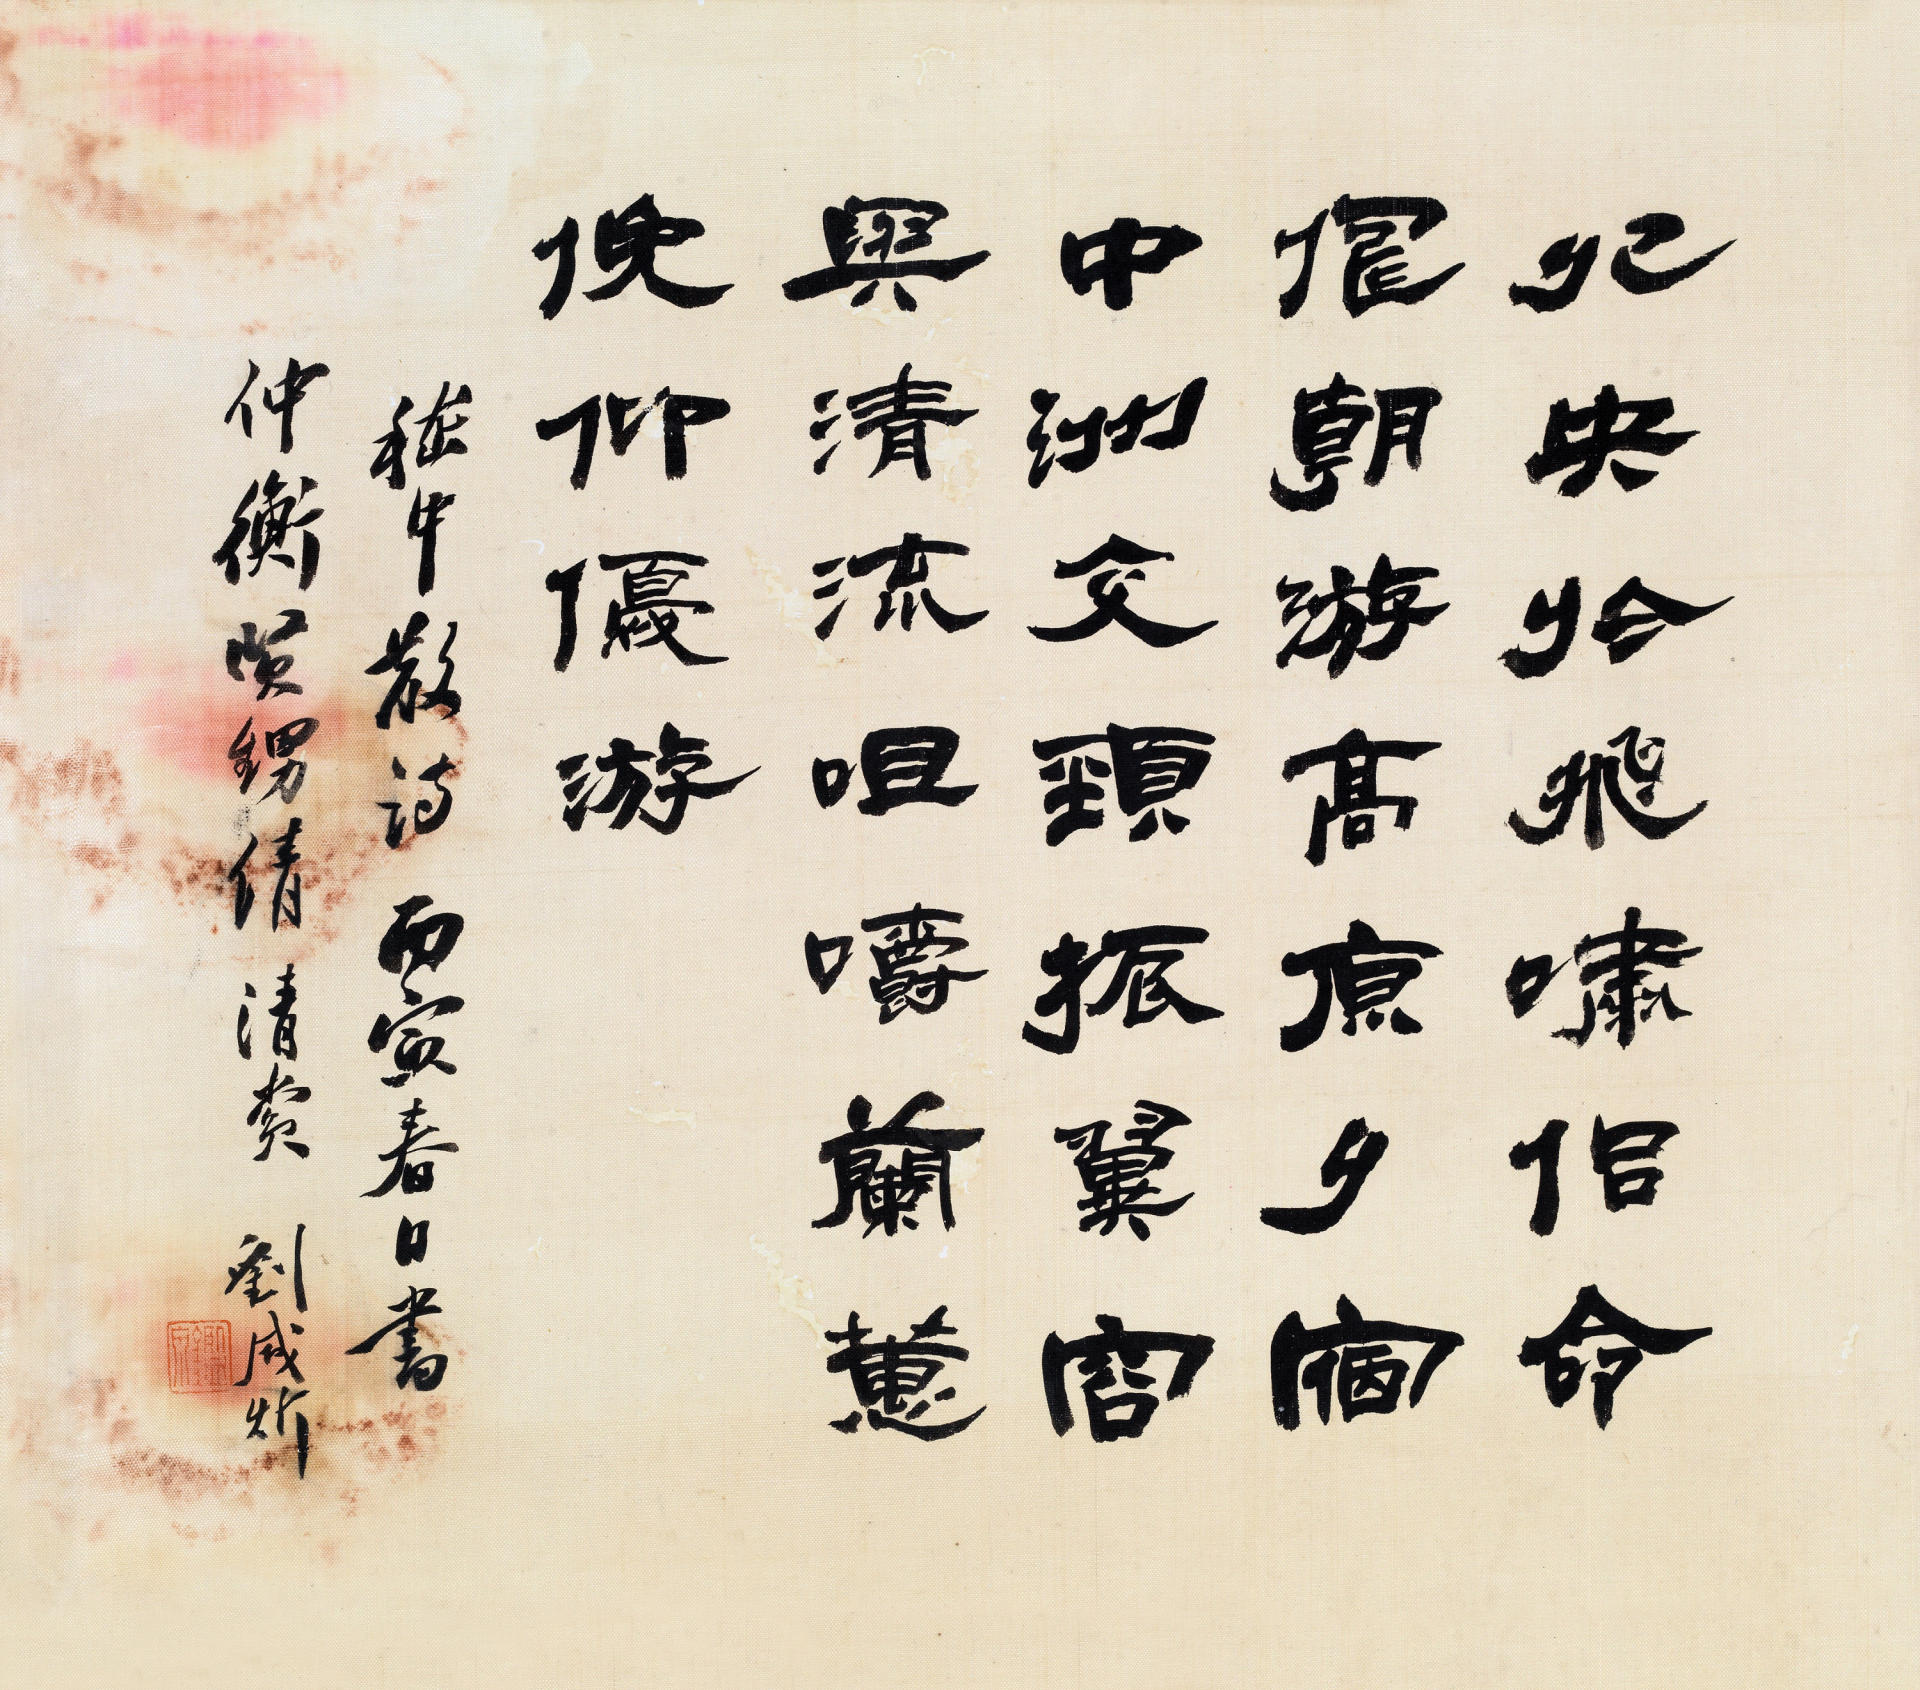 夗央於飛嘯侶命
儔朝游高原夕宿
中洲交頸振翼容
與清流咀嚼蘭蕙
俛仰優游
嵇中散詩 丙寅春日書
仲衡賢甥倩清賞 劉咸炘